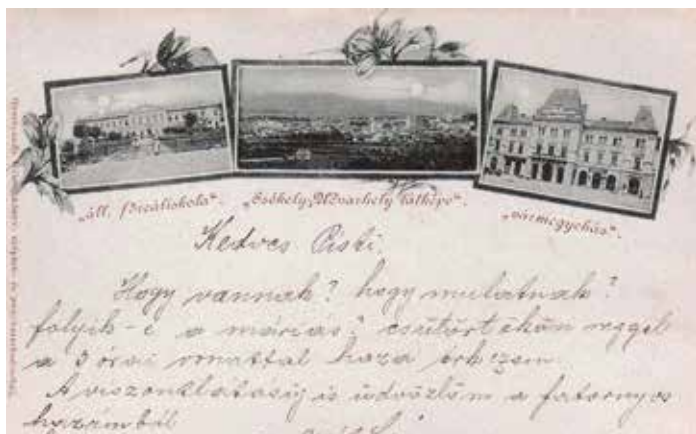 „áll. főreáliskola".
„Székely-Udvarhely látképe".
„vármegyeház".
Kedves Piski.
Hogy vannak? hogy mulatnak?
folyik-e a márias? csütörtökön reggel
a 3 órai vonattal haza érkezem.
A viszontlátásig is üdvözlöm a fatornyos
hazámból